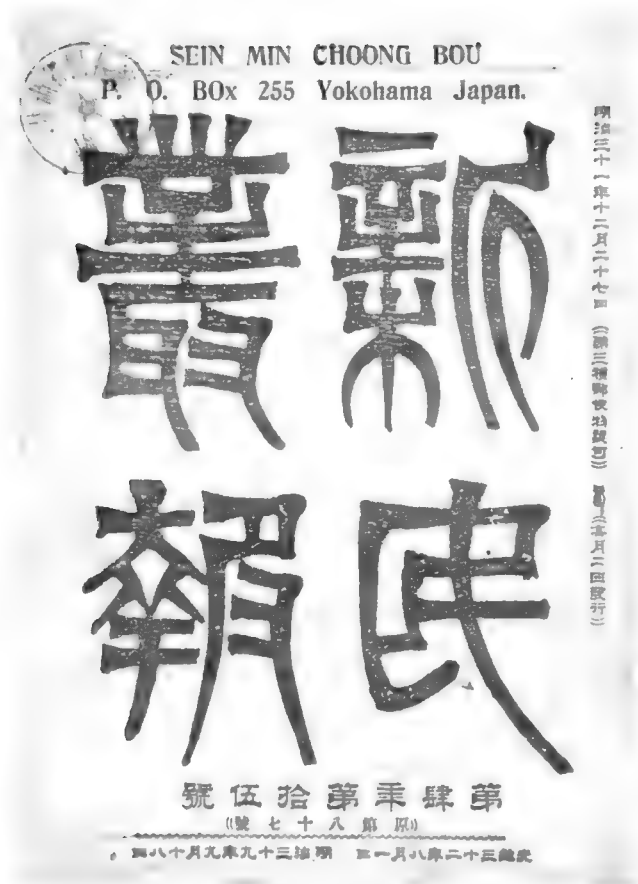 SEIN MIN CHOONG BOU
P. O. BOx 255 Yokohama Japan.
明治三十一年十二月二十七日 (第三種郵便物認可) (每月二回發行)
新民
叢報
第肆年第拾伍號
(原第八十七號)
光緒三十二年八月一日 明治三十九年九月十八日